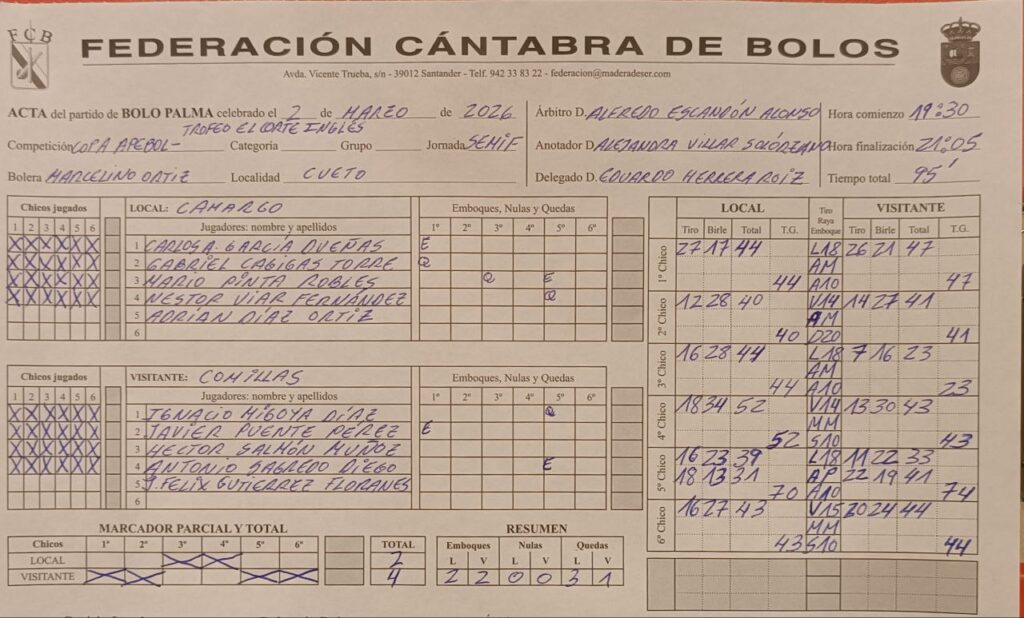 FCB
FEDERACIÓN CÁNTABRA DE BOLOS
Avda. Vicente Trueba, s/n - 39012 Santander - Telf. 942 33 83 22 - federacion@maderadeser.com
ACTA del partido de BOLO PALMA celebrado el 2 de MARZO de 2026
TROFEO EL CORTE INGLÉS
Competición COPA APEBOL- Categoría Grupo Jornada SEMIF
Bolera MARCELINO ORTIZ Localidad CUETO
Árbitro D. ALFREDO ESCANDÓN ALONSO
Anotador D. ALEJANDRA VILLAR SOLÓRZANO
Delegado D. EDUARDO HERRERA ROIZ
Hora comienzo 19:30
Hora finalización 21:05
Tiempo total 95'
Chicos jugados LOCAL: CAMARGO Emboques, Nulas y Quedas
1 2 3 4 5 6 Jugadores: nombre y apellidos 1º 2º 3º 4º 5º 6º
X X X X X X 1 CARLOS A. GARCÍA DUEÑAS E
X X X X X X 2 GABRIEL CAGIGAS TORRE Q
X X X X X X 3 MARIO PINTA ROBLES Q E
X X X X X X 4 NÉSTOR VIAR FERNÁNDEZ Q
5 ADRIAN DÍAZ ORTIZ
6
Chicos jugados VISITANTE: COMILLAS Emboques, Nulas y Quedas
1 2 3 4 5 6 Jugadores: nombre y apellidos 1º 2º 3º 4º 5º 6º
X X X X X X 1 IGNACIO MIGOYA DÍAZ Q
X X X X X X 2 JAVIER PUENTE PÉREZ E
X X X X X X 3 HECTOR SALMÓN MUÑOZ
X X X X X X 4 ANTONIO SAGREDO DIEGO E
5 J. FELIX GUTIERREZ FLORANES
6
MARCADOR PARCIAL Y TOTAL
Chicos 1º 2º 3º 4º 5º 6º TOTAL
LOCAL X X 2
VISITANTE X X X X 4
RESUMEN
Emboques Nulas Quedas
L V L V L V
2 2 0 0 3 1
LOCAL Tiro Raya Emboque VISITANTE
Tiro Birle Total T.G. Tiro Birle Total T.G.
1º Chico 27 17 44 L18 26 21 47
AM
44 A10 47
2º Chico 12 28 40 V14 14 27 41
AM
40 D20 41
3º Chico 16 28 44 L18 7 16 23
AM
44 A10 23
4º Chico 18 34 52 V14 13 30 43
MM
52 S10 43
5º Chico 16 23 39 L18 11 22 33
18 13 31 AP 22 19 41
70 A10 74
6º Chico 16 27 43 V15 20 24 44
MM
43 S10 44